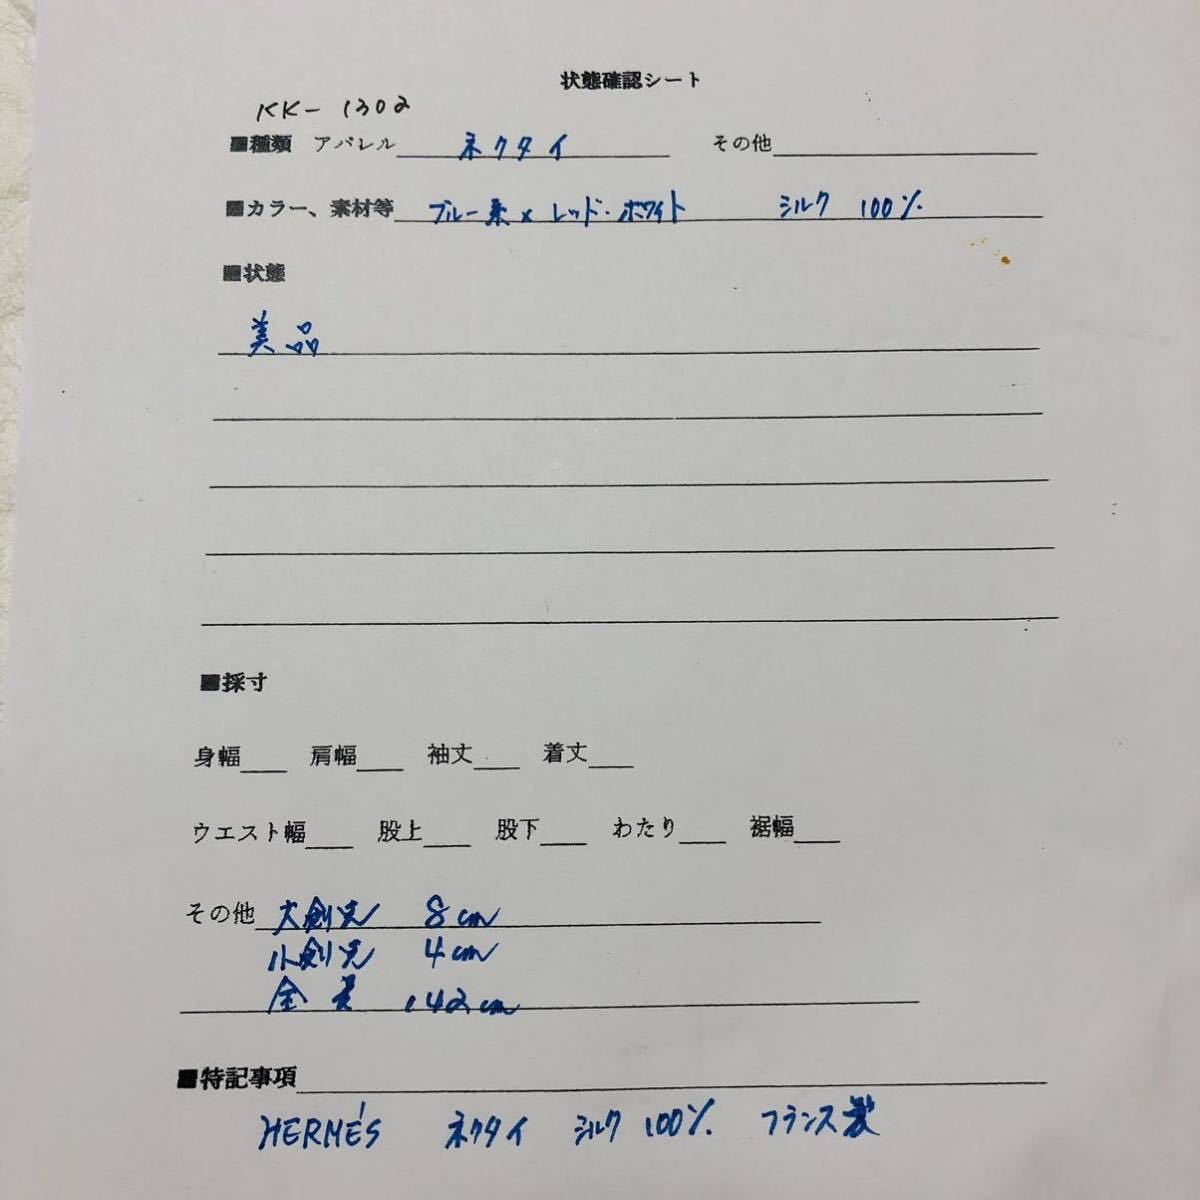 状態確認シート
KK- 1302
■種類 アパレル ネクタイ その他
■カラー、素材等 ブルー系×レッド・ホワイト シルク 100%
■状態
美品
■採寸
身幅 肩幅 袖丈 着丈
ウエスト幅 股上 股下 わたり 裾幅
その他 大剣先 8cm
小剣先 4cm
全長 142cm
■特記事項
HERMÉS ネクタイ シルク 100% フランス製